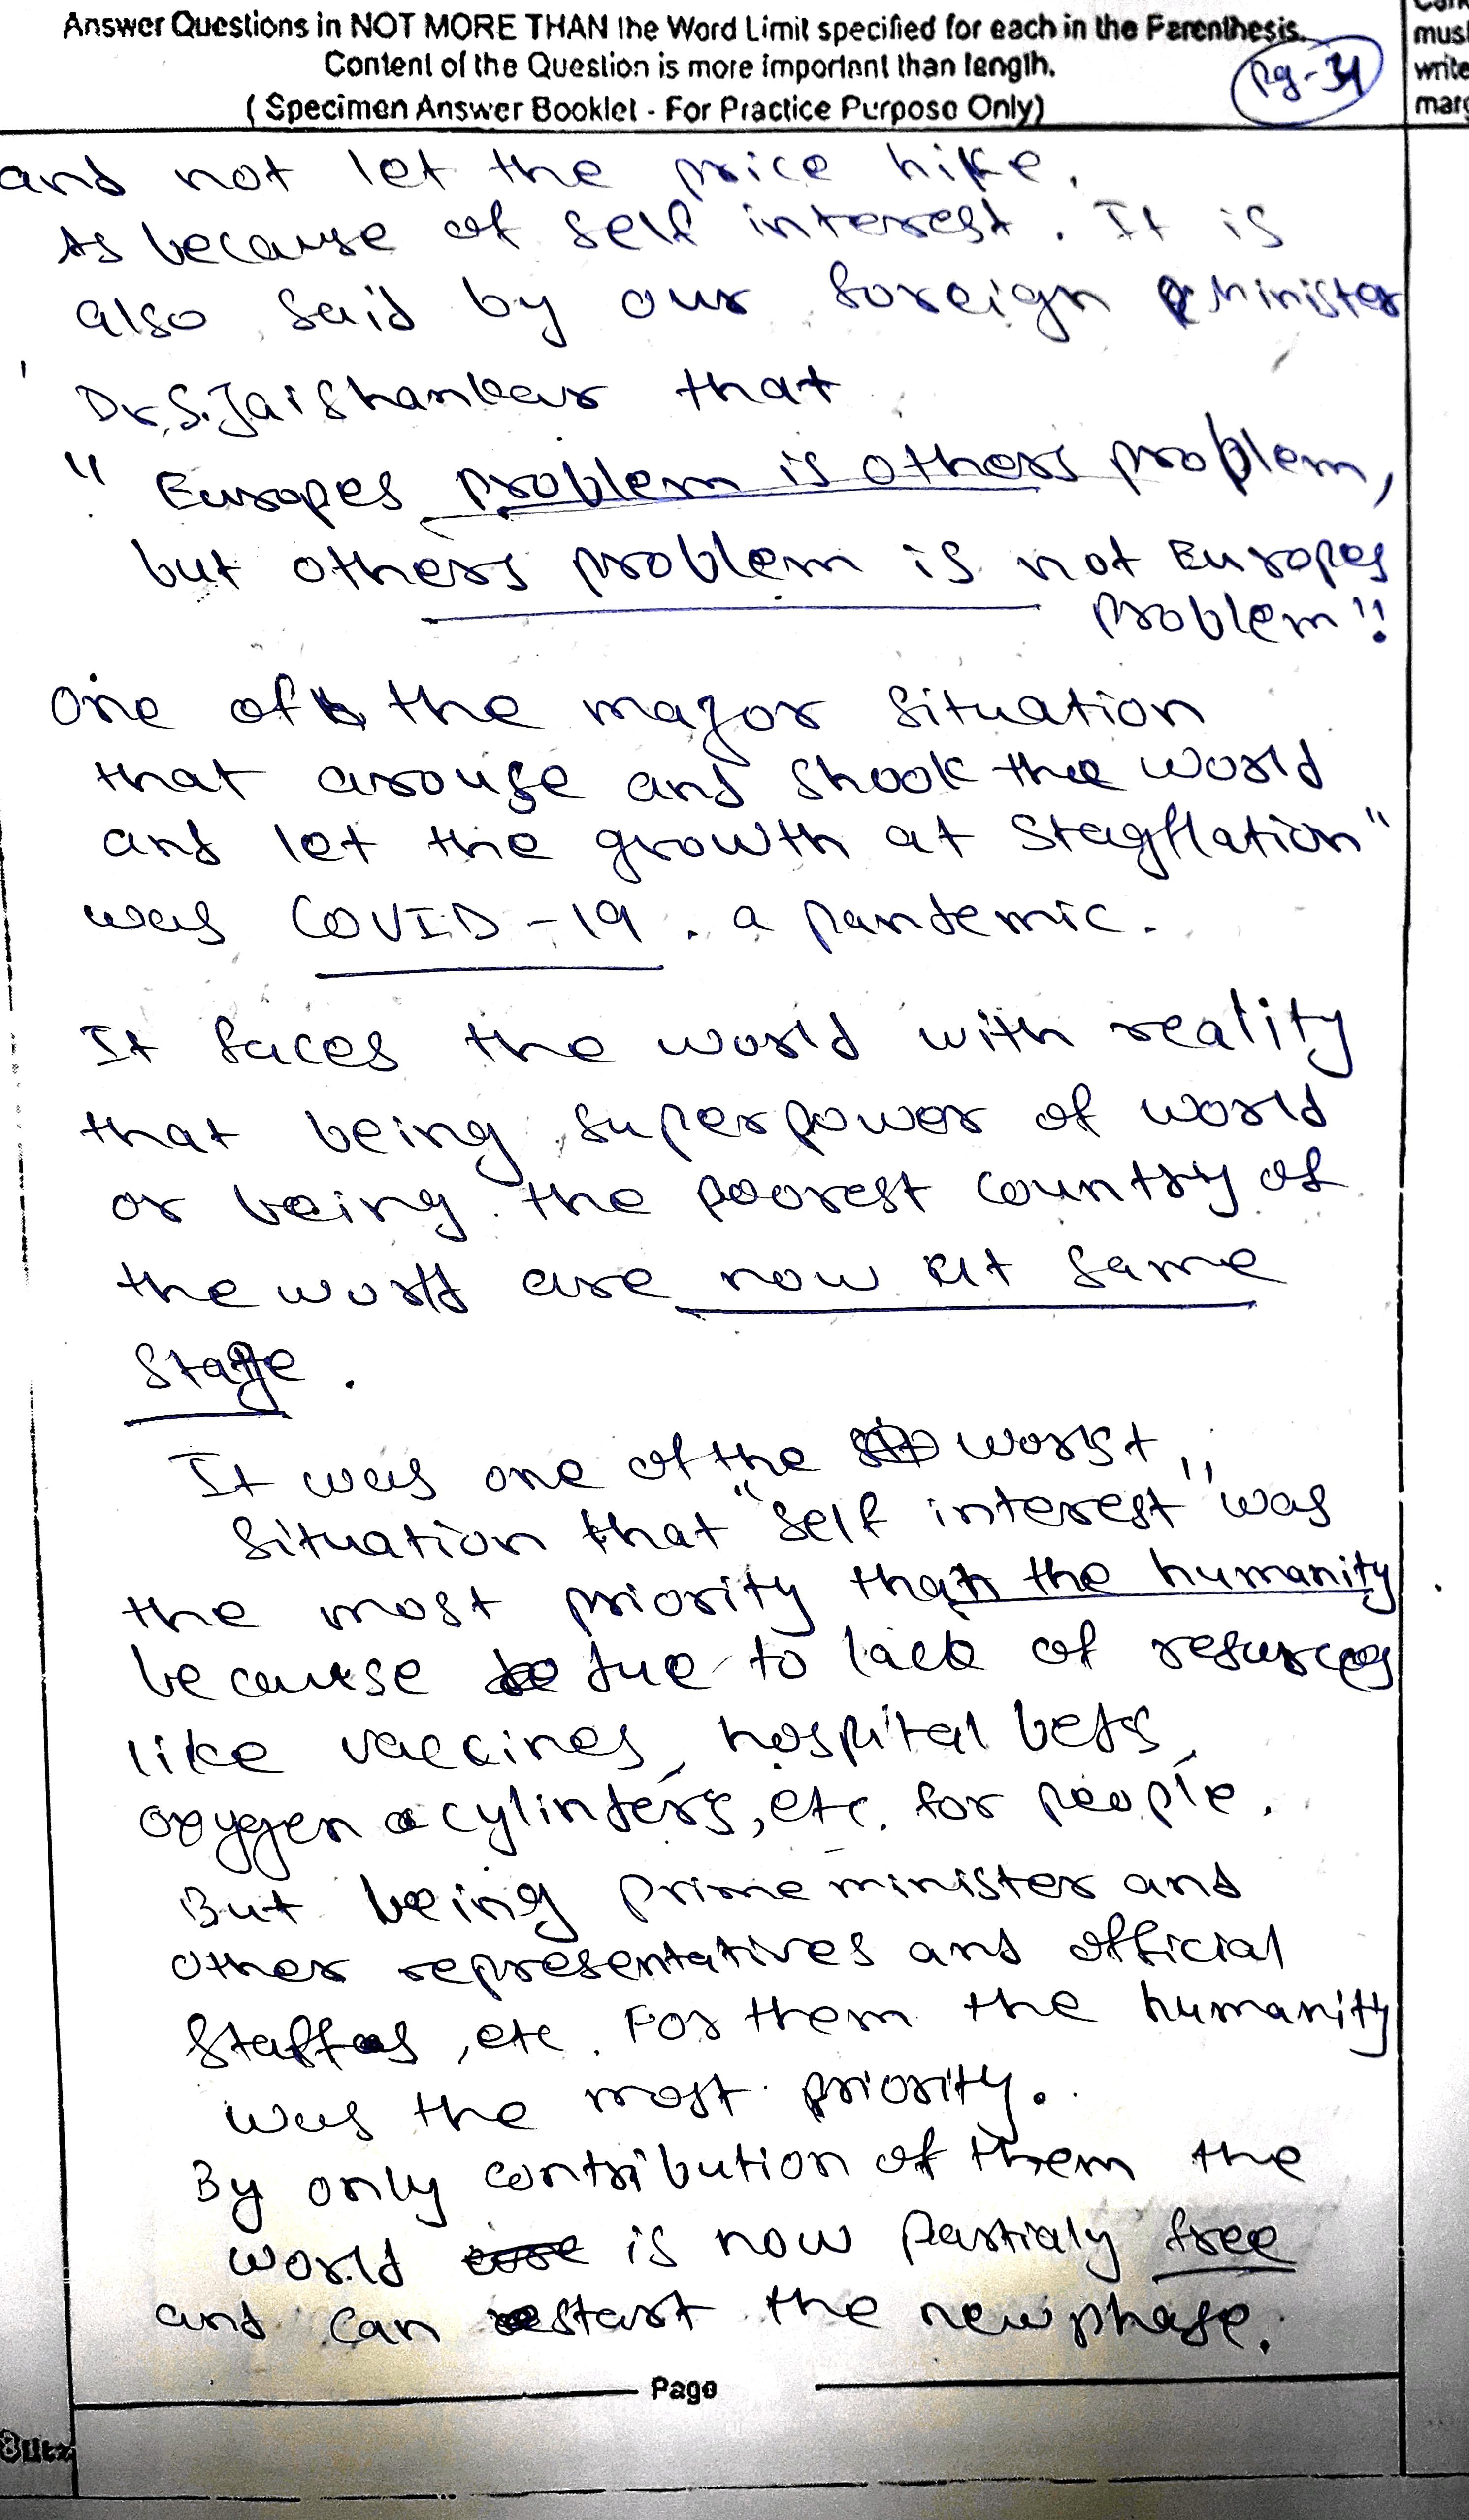 Answer Questions in NOT MORE THAN the Word Limit specified for each in the Parenthesis.
Content of the Question is more important than length.
( Specimen Answer Booklet - For Practice Purpose Only)
Pg-31
must
write
and not let the price hike.
As because of self interest. It is
also said by our foreign Minister
Dr. S. Jaishankar that
" Europes problem is others problem,
but others problem is not Europes
problem".
One of the major situation
that arouse and shook the world
and let the growth at Stagflation"
was COVID-19. a pandemic.
It faces the world with reality
that being superpower of world
or being the poorest country of
the world are now at same
stage.
It was one of the worst
situation that "self interest" was
the most priority than the humanity.
because due to lack of resurces
like vaccines, hospital beds,
oxygen cylinders, etc. for people.
But being prime minister and
other representatives and official
staffs, etc. For them the humanity
was the most priority.
By only contribution of them the
world is now partialy free
and can restart the new phase.
Page